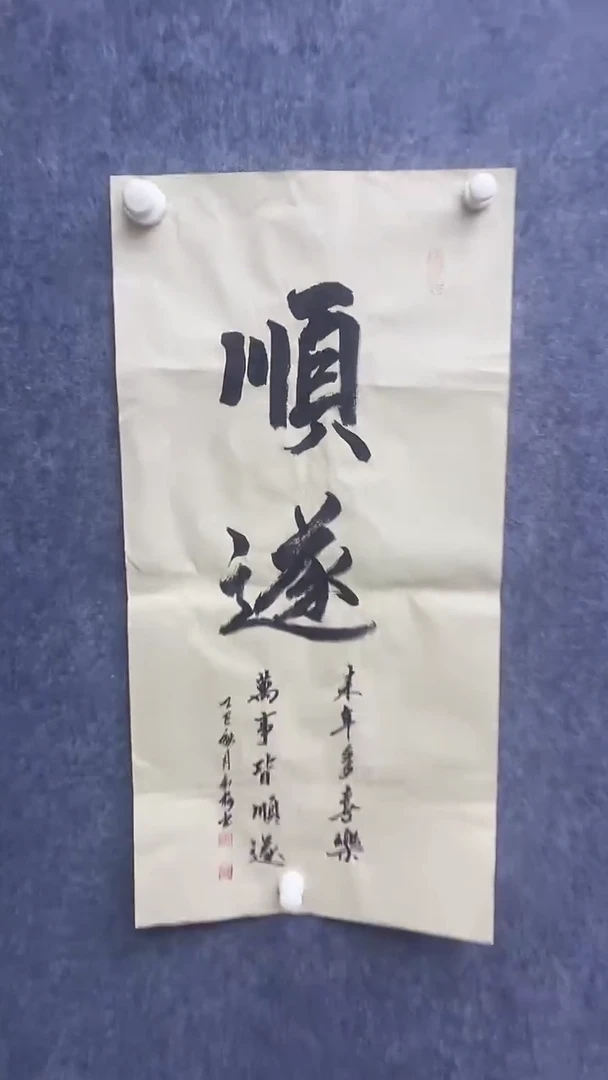 順遂
來年多喜樂
萬事皆順遂
乙巳秋月